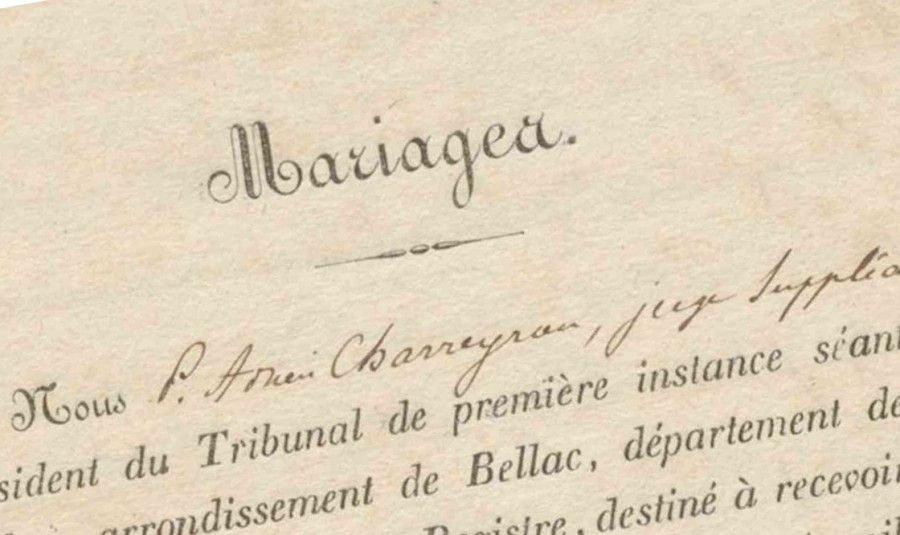 Mariages.
Nous P. Charreyron, juge Suppléa
sident du Tribunal de première instance séant
arrondissement de Bellac, département de
Registre, destiné à recevoir